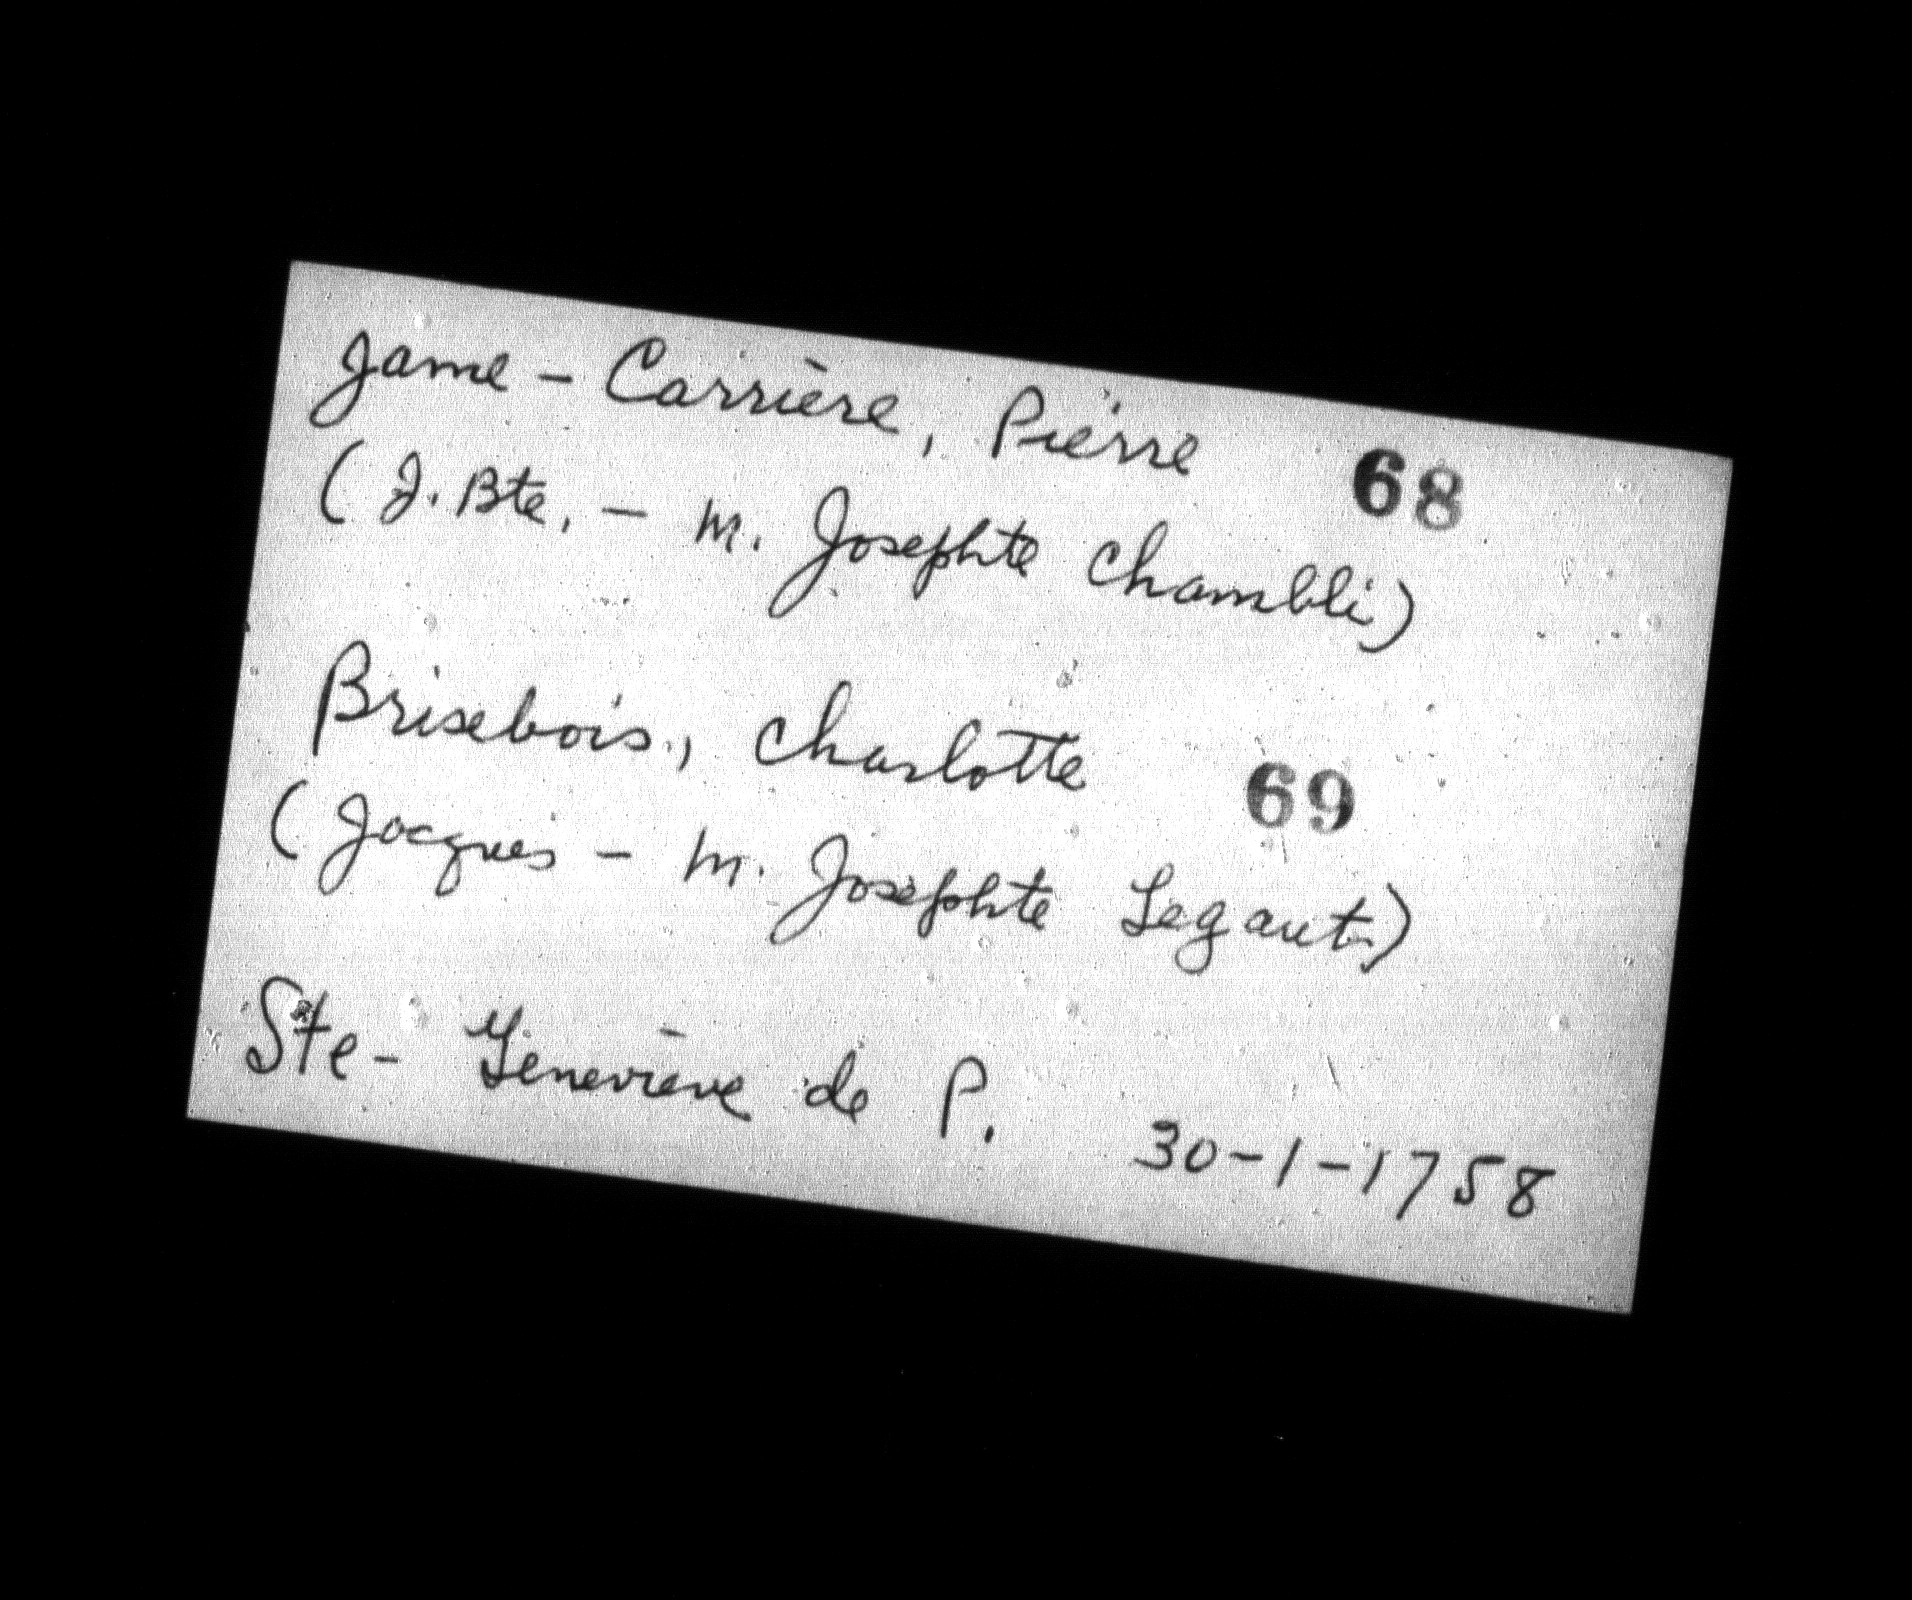 Jame - Carrière, Pierre 68
(J. Bte. - M. Josephte Chambli)
Brisebois, Charlotte 69
(Jacques - M. Josephte Legault)
Ste- Geneviève de P. 30-1-1758